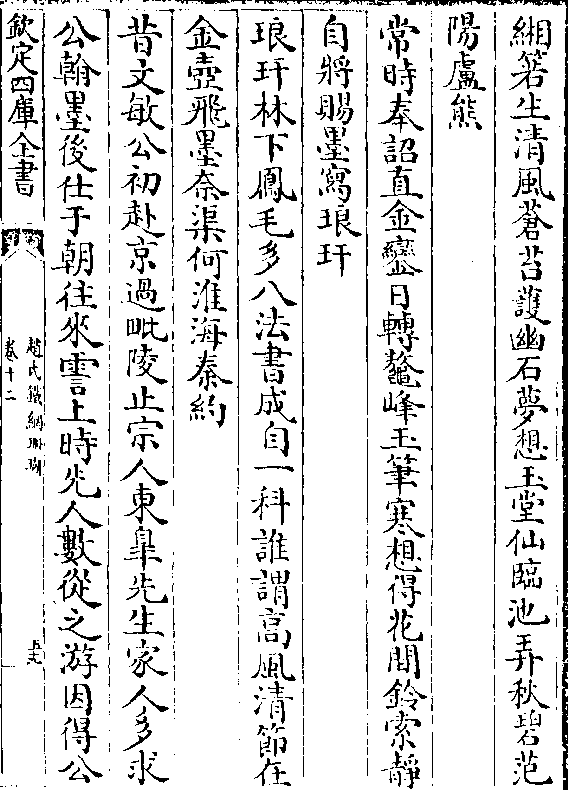 緗箬生清風蒼苔護幽石夢想玉堂仙臨池弄秋碧范
陽盧熊
常時奉詔直金鑾日轉鼇峰玉筆寒想得花間鈴索靜
自將賜墨寫琅玕
琅玕林下鳳毛多八法書成自一科誰謂高風清節在
金壺飛墨奈渠何淮海秦約
昔文敏公初赴京過毗陵止宗人東臯先生家人多求
公翰墨後仕于朝往來霅上時先人數從之游因得公
欽定四庫全書
趙氏鐵網珊瑚
卷十二